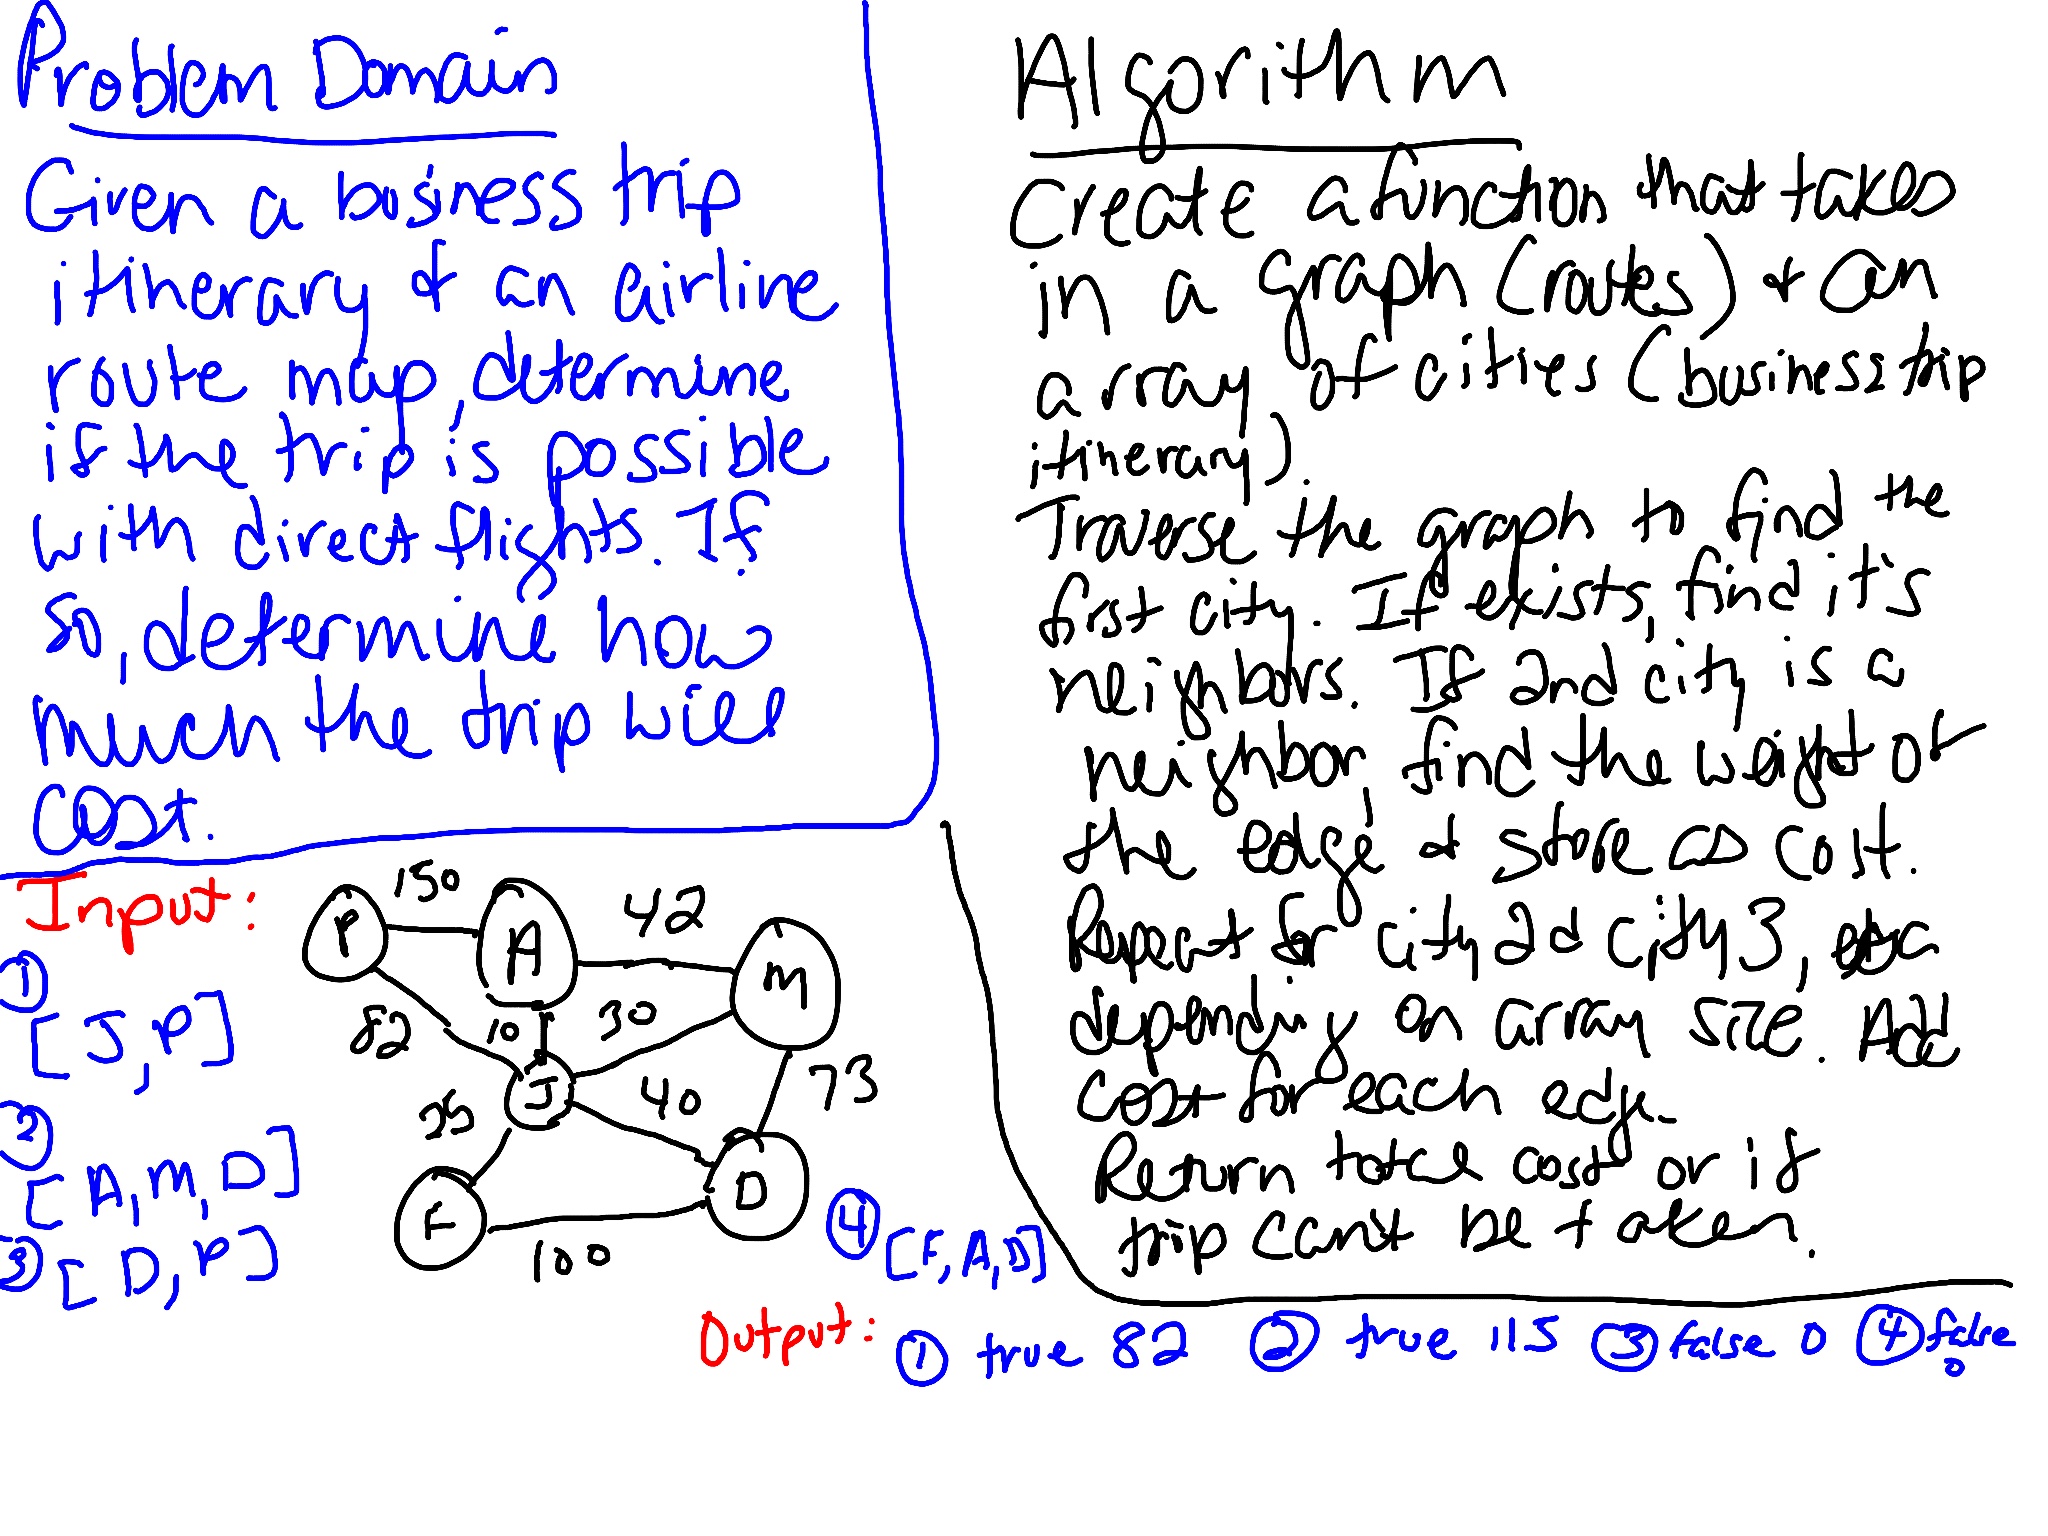 Problem Domain
Given a business trip
itinerary & an airline
route map, determine
if the trip is possible
with direct flights. If
so, determine how
much the trip will
cost.
Algorithm
Create a function that takes
in a graph (routes) & an
array of cities (business trip
itinerary)
Traverse the graph to find the
first city. If exists, find it's
neighbors. If 2nd city is a
neighbor, find the weight of
the edge & store as cost.
Repeat for city 2 & city 3,
depending on array size. Add
cost for each edge.
Return total cost or if
trip can't be taken.
Input:
① [J, P]
② [A, M, D]
③ [D, P]
④ [F, A, D]
P
150
A
42
M
82
10
30
J
40
73
F
100
D
Output:
① true 82 ② true 115 ③ false 0 ④ false 0